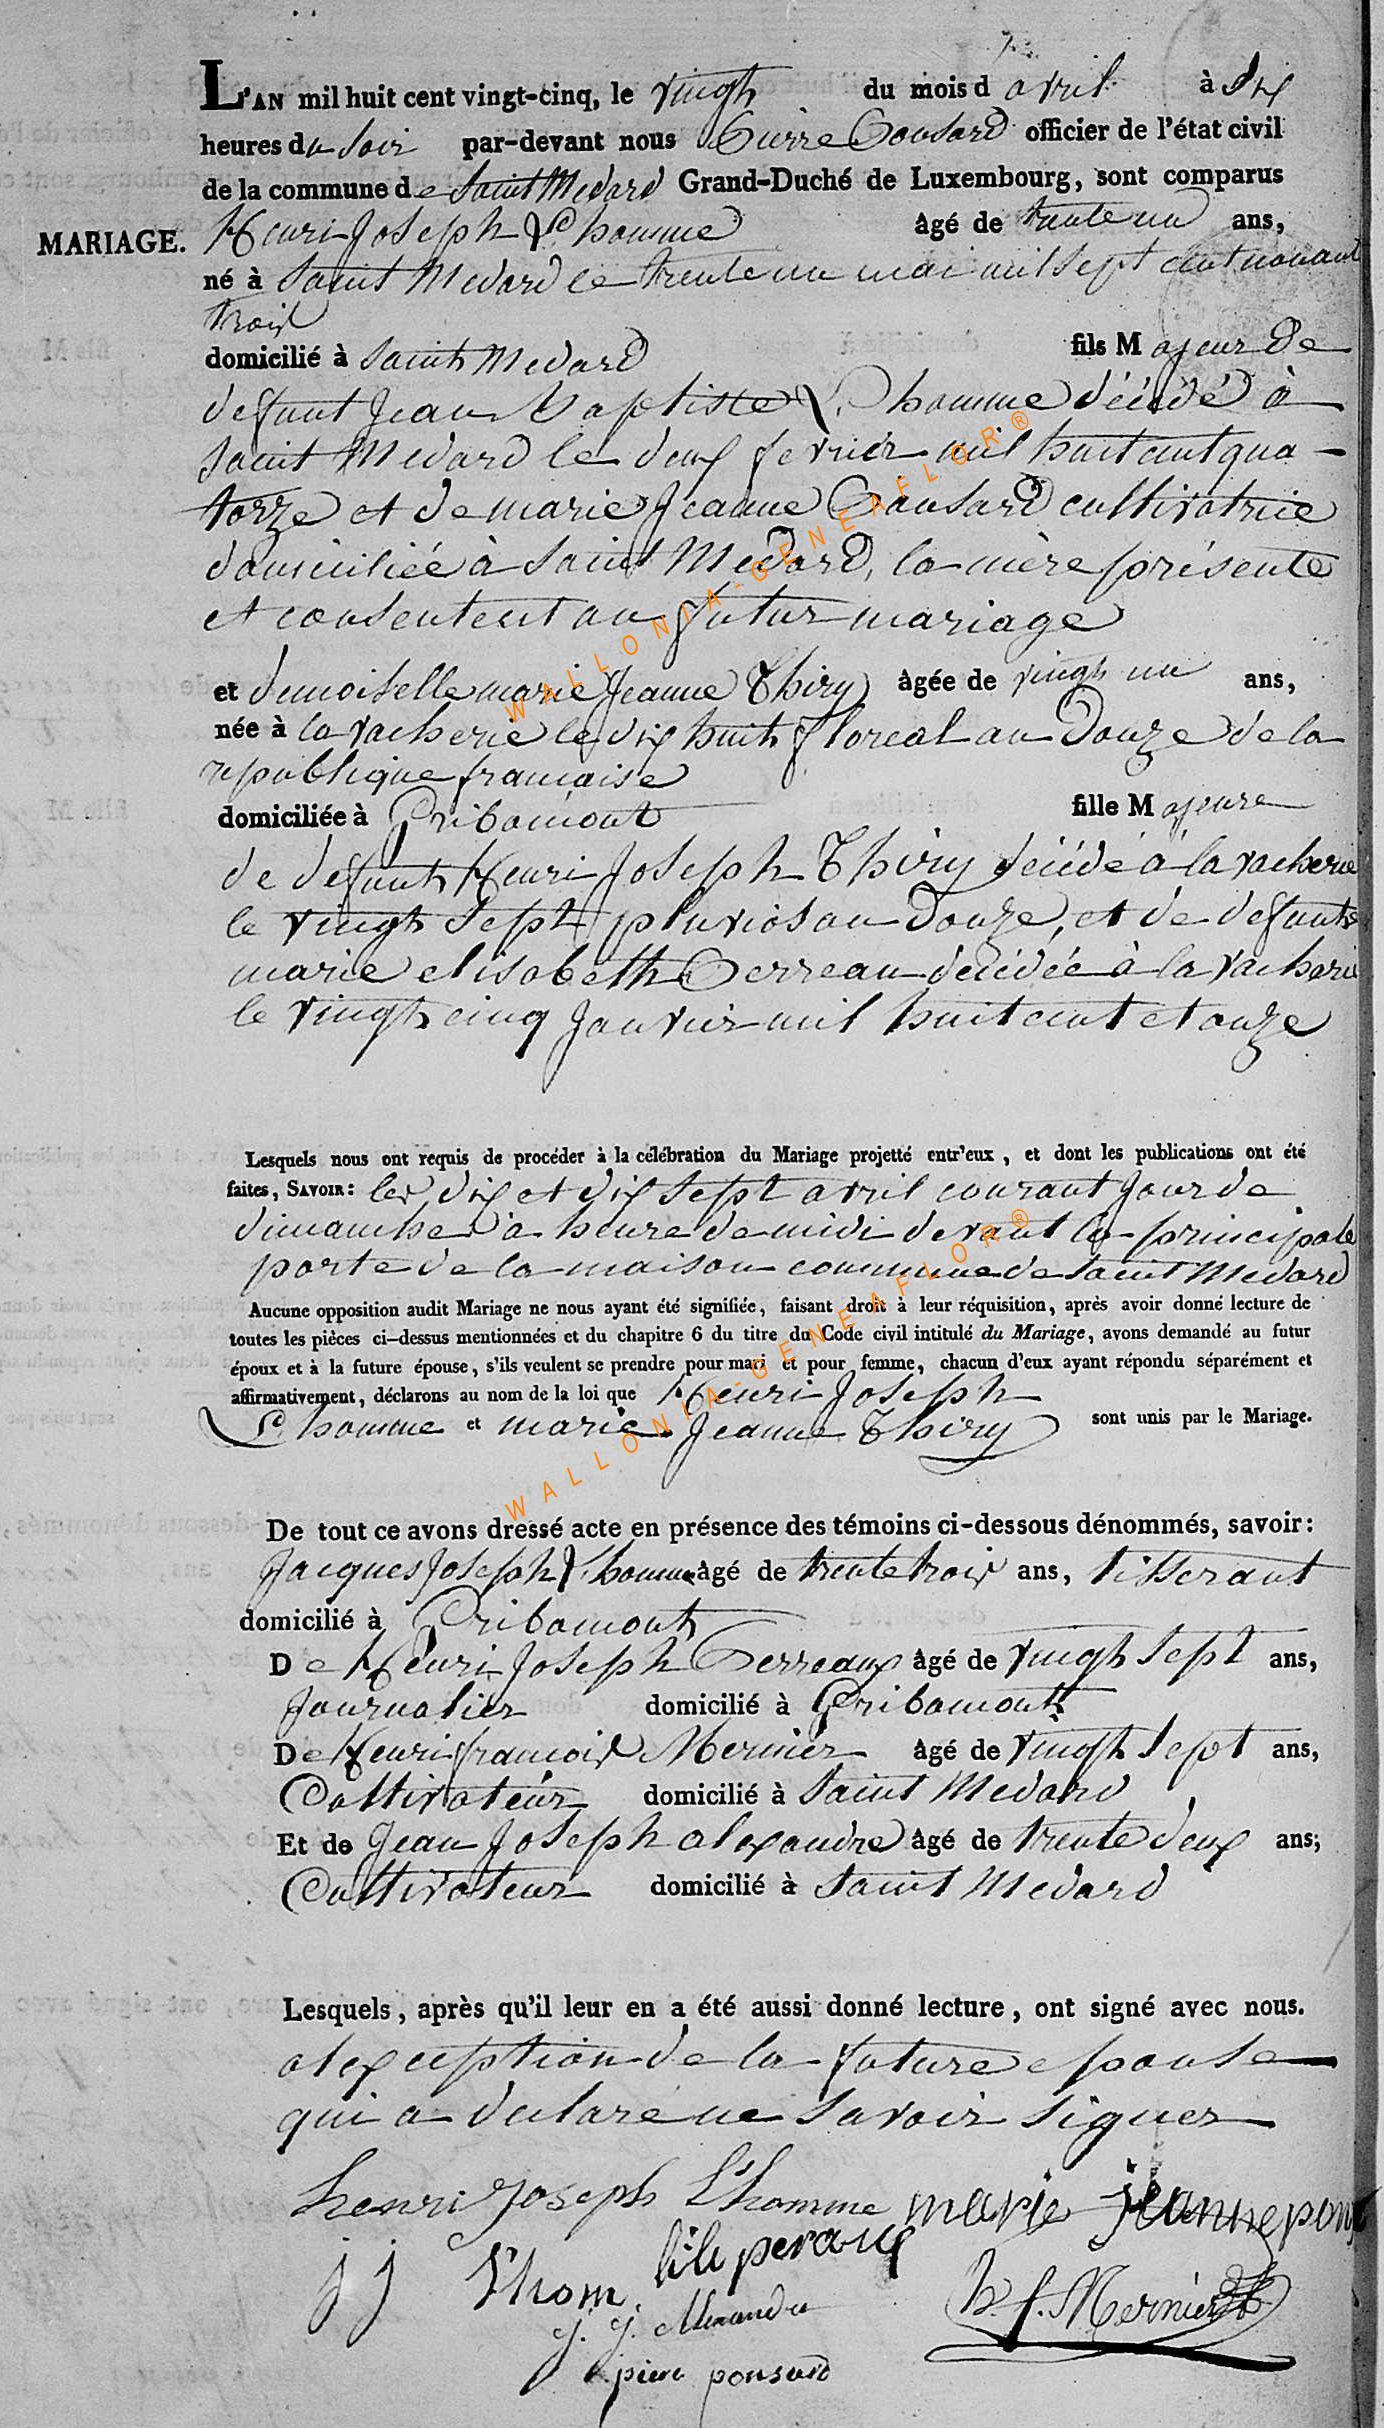 L'AN mil huit cent vingt-cinq, le vingt du mois d avril à Six
heures du soir par-devant nous Pierre Ponsard officier de l'état civil
de la commune de Saint Medard Grand-Duché de Luxembourg, sont comparus
MARIAGE. Henri Joseph L'homme âgé de trente un ans,
né à Saint Medard le trente un mai mil sept cent nonant
trois
domicilié à Saint Medard fils Majeur de
defunt Jean Baptiste L'homme décédé à
Saint Medard le deux fevrier mil huit cent qua-
torze et de marie Jeanne Ponsard cultivatrice
domiciliée à Saint Medard, la mère présente
et consentent au futur mariage
et demoiselle marie Jeanne Thiry âgée de vingt un ans,
née à la vacherie le dix huit floreal an Douze de la
republique francaise
domiciliée à Gribomont fille Majeure
de defunt Henri Joseph Thiry décédé à la vacherie
le vingt sept pluvios an Douze, et de defunte
marie elisabeth Perreau décédée à la vacherie
le vingt cinq Janvier mil huit cent et onze
Lesquels nous ont requis de procéder à la célébration du Mariage projetté entr'eux, et dont les publications ont été
faites, SAVOIR: les dix et dix sept avril courant Jour de
dimanche à heure de midi devant la principale
porte de la maison commune de Saint Medard
Aucune opposition audit Mariage ne nous ayant été signifiée, faisant droit à leur réquisition, après avoir donné lecture de
toutes les pièces ci-dessus mentionnées et du chapitre 6 du titre du Code civil intitulé du Mariage, avons demandé au futur
époux et à la future épouse, s'ils veulent se prendre pour mari et pour femme, chacun d'eux ayant répondu séparément et
affirmativement, déclarons au nom de la loi que Henri Joseph
L'homme et marie Jeanne Thiry sont unis par le Mariage.
De tout ce avons dressé acte en présence des témoins ci-dessous dénommés, savoir:
Jacques Joseph L'homme âgé de trente trois ans, tisserant
domicilié à Gribomont
De Henri Joseph Perreaux âgé de vingt sept ans,
Journalier domicilié à Gribomont
De Henri francois Mernier âgé de vingt sept ans,
Cultivateur domicilié à Saint Medard
Et de Jean Joseph alexandre âgé de trente deux ans;
Cultivateur domicilié à Saint Medard
Lesquels, après qu'il leur en a été aussi donné lecture, ont signé avec nous.
a lexception de la future epouse
qui a declaré ne savoir signer
henri Joseph L'homme marie jeanne pons
j j l'hom. peraux
J. J. Alexandre h. f. Mernier
pierre ponsard
WALLONIA-GENEAFLOR®
WALLONIA-GENEAFLOR®